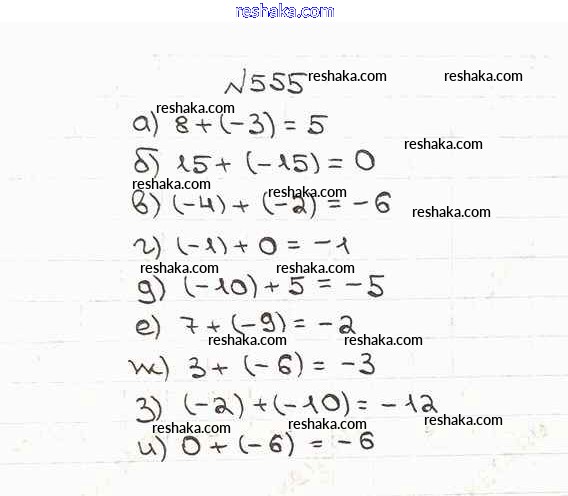 reshaka.com
№555 reshaka.com reshaka.com
reshaka.com
а) 8 + (-3) = 5
reshaka.com
б) 15 + (-15) = 0
reshaka.com reshaka.com
в) (-4) + (-2) = -6
reshaka.com
г) (-1) + 0 = -1
reshaka.com reshaka.com
д) (-10) + 5 = -5
е) 7 + (-9) = -2
reshaka.com reshaka.com
ж) 3 + (-6) = -3
з) (-2) + (-10) = -12
reshaka.com reshaka.com
и) 0 + (-6) = -6